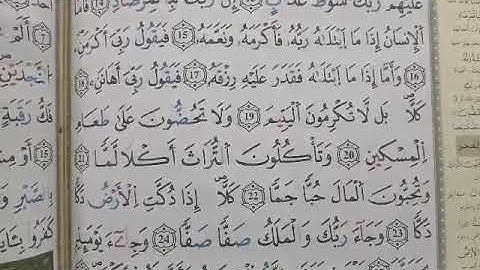 عَلَيْهِمْ رَبُّكَ سَوْطَ عَذَابٍ إِنَّ رَبَّكَ لَبِالْمِرْصَادِ 14 فَأَمَّا
الْإِنسَٰنُ إِذَا مَا ابْتَلَىٰهُ رَبُّهُ فَأَكْرَمَهُ وَنَعَّمَهُ 15 فَيَقُولُ رَبِّيَ أَكْرَمَنِ
16 وَأَمَّا إِذَا مَا ابْتَلَىٰهُ فَقَدَرَ عَلَيْهِ رِزْقَهُ 17 فَيَقُولُ رَبِّيَ أَهَانَنِ 18
كَلَّا بَل لَّا تُكْرِمُونَ الْيَتِيمَ 19 وَلَا تَحُضُّونَ عَلَىٰ طَعَامِ
الْمِسْكِينِ 20 وَتَأْكُلُونَ التُّرَاثَ أَكْلًا لَّمًّا 21
وَتُحِبُّونَ الْمَالَ حُبًّا جَمًّا 22 كَلَّا إِذَا دُكَّتِ الْأَرْضُ دَكًّا
دَكًّا 23 وَجَاءَ رَبُّكَ وَالْمَلَكُ صَفًّا صَفًّا 24 وَجِاْيٓءَ يَوْمَئِذٍ
7 أَلَمْ
النَّجْدَيْنِ
فَكُّ رَقَبَةٍ
15 أَوْ
كَفَرُوا